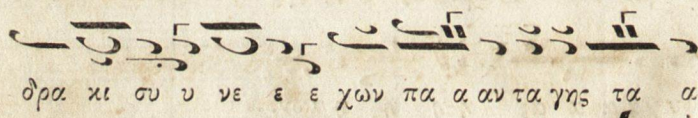 δρα κι συ υ νε ε ε χων πα α αν τα γης τα α